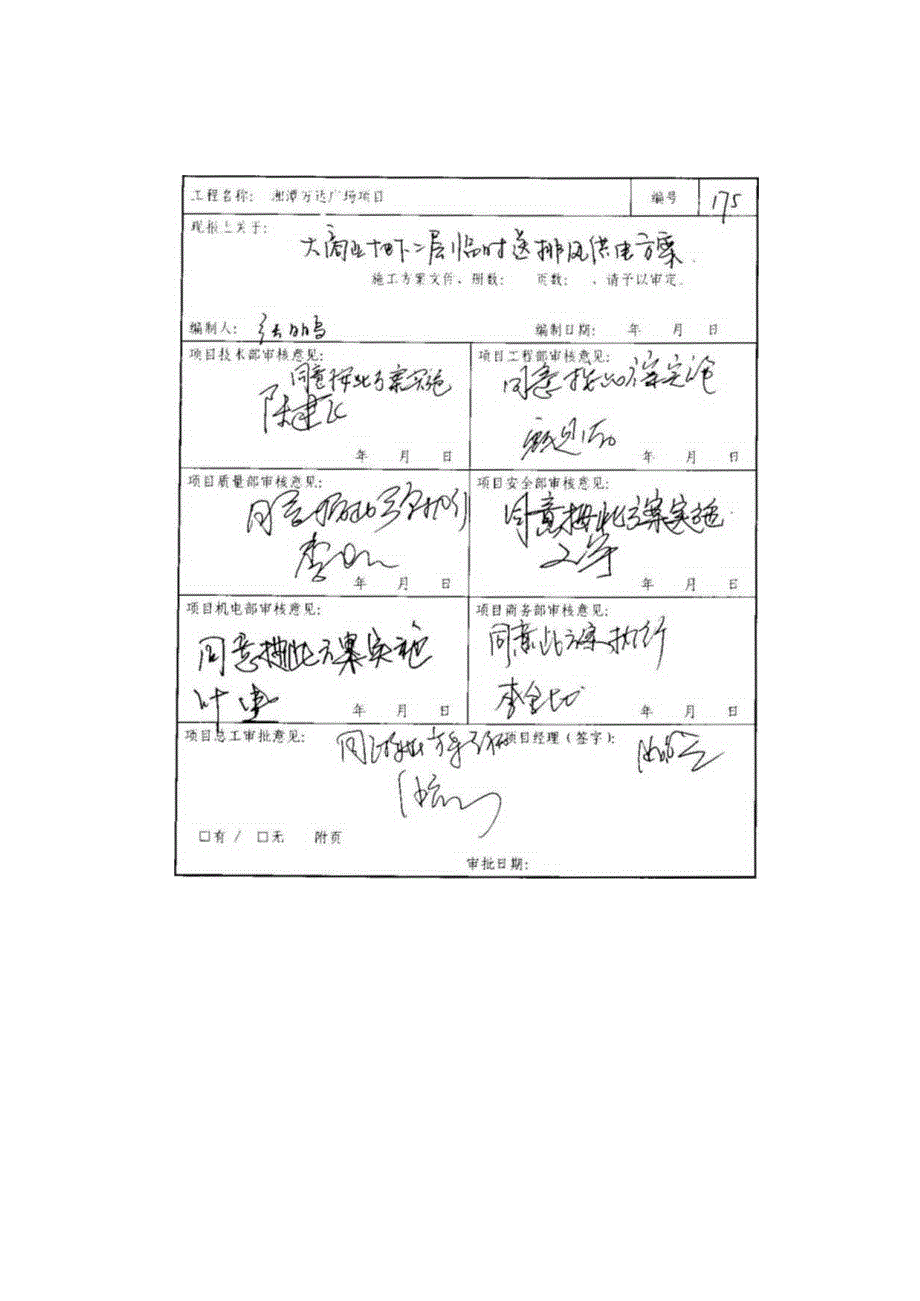 工程名称: 湘潭万达广场项目 编号 175
现报上关于:
大商业地下二层临时送排风供电方案
施工方案文件、册数: 页数: 、请予以审定.
编制人: 编制日期: 年 月 日
项目技术部审核意见: 项目工程部审核意见:
同意按此方案实施 同意按此方案实施
陈建飞
年 月 日 年 月 日
项目质量部审核意见: 项目安全部审核意见:
同意按此方案执行 同意按此方案实施.
年 月 日 年 月 日
项目机电部审核意见: 项目商务部审核意见:
同意按此方案实施 同意此方案执行
叶建
年 月 日 年 月 日
项目总工审批意见: 项目经理(签字):
□有 / □无 附页
审批日期: